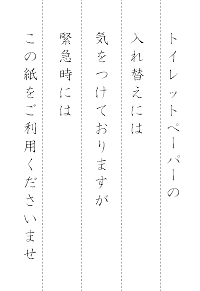 トイレットペーパーの
入れ替えには
気をつけておりますが
緊急時には
この紙をご利用くださいませ